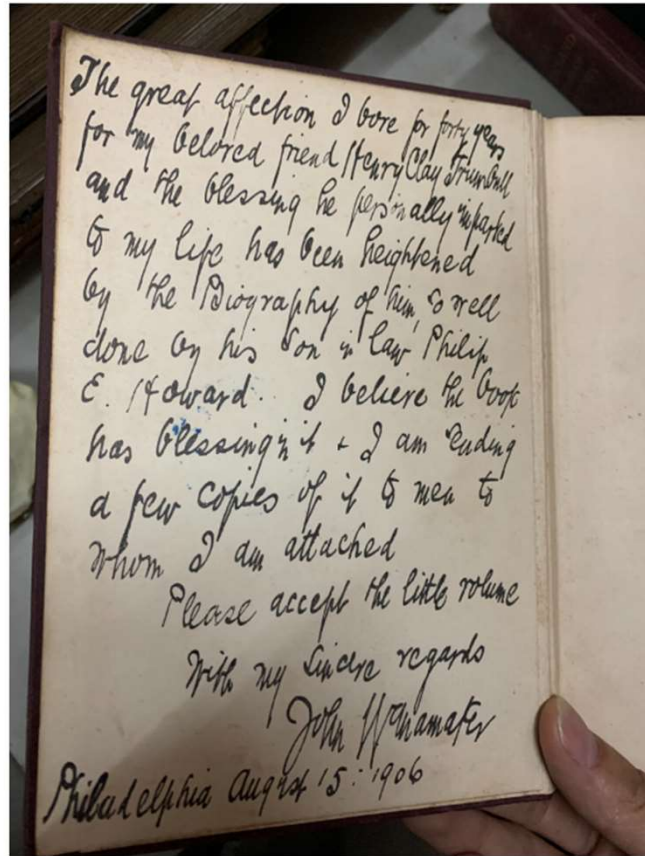 The great affection I bore for forty years
for my beloved friend Henry Clay Trumbull
and the blessing he personally imparted
to my life has been heightened
by the Biography of him, so well
done by his son in law Philip
E. Howard. I believe the book
has blessing in it & I am sending
a few copies of it to men to
whom I am attached
Please accept the little volume
With my sincere regards
John Wanamaker
Philadelphia August 15: 1906